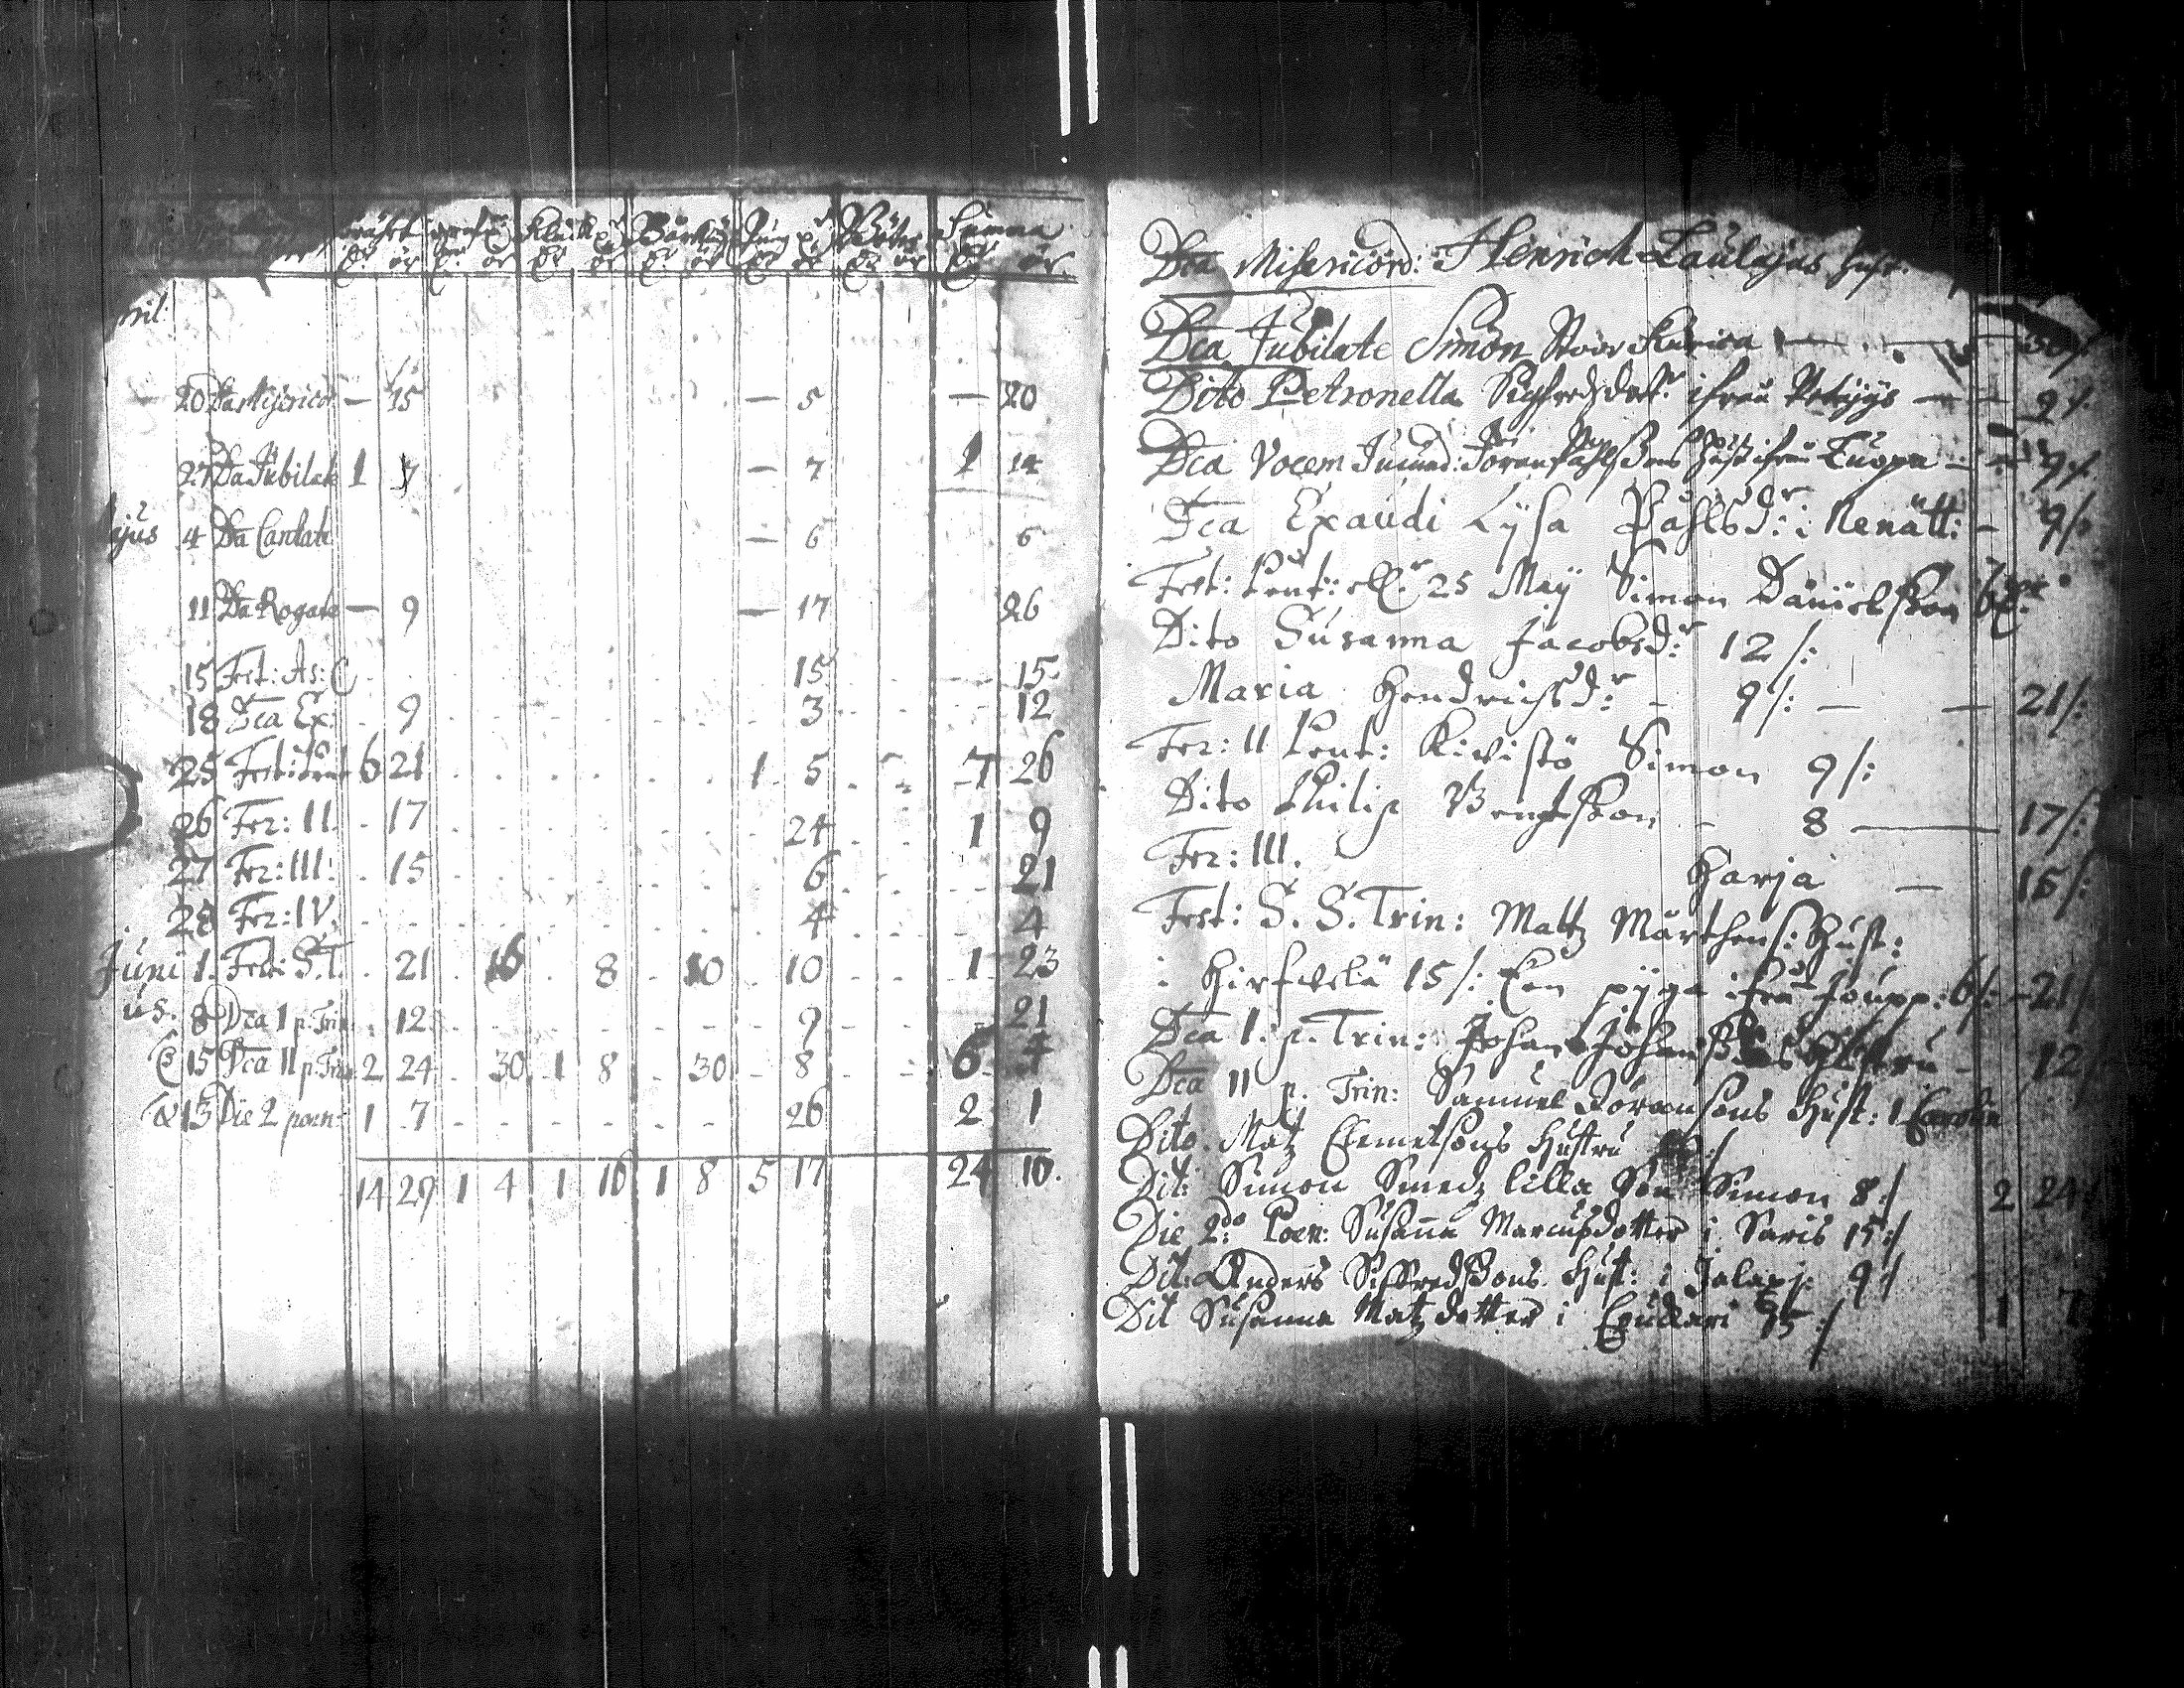 Summa
ör ör ör ör ör ör ör
ril:
20 Dca Misericor — 15 — 5 — 20
27 Dca Jubilate 1 7 — 7 1 14
ajus 4 Dca Cantate — 6 6
11 Dca Rogate — 9 — 17 26
15 Fest: As: C 15 15
18 Dca Ex: 9 3 12
25 Fest: Pent 6 21 1 5 7 26
26 Fer: II 17 24 1 9
27 Fer: III: 15 6 21
28 Fer: IV. 4 4
Juni 1. Fest: S.T. 21 16 8 10 10 1 23
us. 8 Dca I p. Trin 12 9 21
15 Dca II p. Trin 2 24 30 1 8 30 8 6 4
15 Die 2 poen: 1 7 26 2 1
14 29 1 4 1 16 1 8 5 17 24 10.
Dca Misericord: Henrich Laulajas Hust:
Dca Jubilate Simon
Dito Petronella Sigfredzdotr ifrån — 9 /:
Dca Vocem Jucund: Jöran Påhlssons Hust ifrån — 9 /:
Dca Exaudi Lysa Påhlsdr: i Nenätt: — 9/:
Fest: Pent: 25 Maij Simon Danielsson 6
Dito Susanna Jacobsdr: 12 /:
Maria Hendrichsdr: — 9/: — — 21/:
Fer: II Pent: Kivistö Simon 9/:
Dito Philip Bengtsson — 8 — 17/:
Fer: III. Harja — 15/:
Fest: S. S. Trin: Matz Mårthens: Hust:
i Hirfvelä 15/: Een pyga ifrå Joupp: 6/: — 21/:
Dca I. p. Trin: Johan Johanssons Hustru — 12
Dca II p. Trin: Samuel Jöransons Hust: 1
Dito. Matz Clemetsons Hustru
Dit: Simon Smedz lilla Son Simon 8:/ 2 24
Die 2:do Poen: Susanna Marcusdotter i Saris 15:/
Dit: Anders Siffredssons Hust: i Jalasj: 9:/
Dit Susanna Matzdotter i 15:/ 1 7